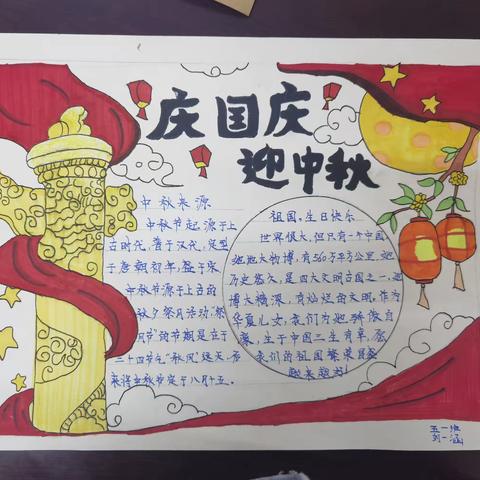 庆国庆
迎中秋
中秋来源
中秋节起源于上
古时代，普于汉代，定型
于唐朝初年，盛于宋
中秋节源于上古的
秋夕祭月活动，祭
月节"的节期是在干
二十四节气"秋风"这天，后
来将中秋节定于八月十五。
祖国，生日快乐
世界很大，但只有一个中国
地地大物博，有960万平方公里，她
历史悠久，是四大文明古国之一，她
博大精深，有灿烂的文明，作为
华夏儿女，我们为她骄傲自
豪，生于中国三生有幸，愿
我们的祖国繁荣昌盛
越来越好！
五一班
刘一涵